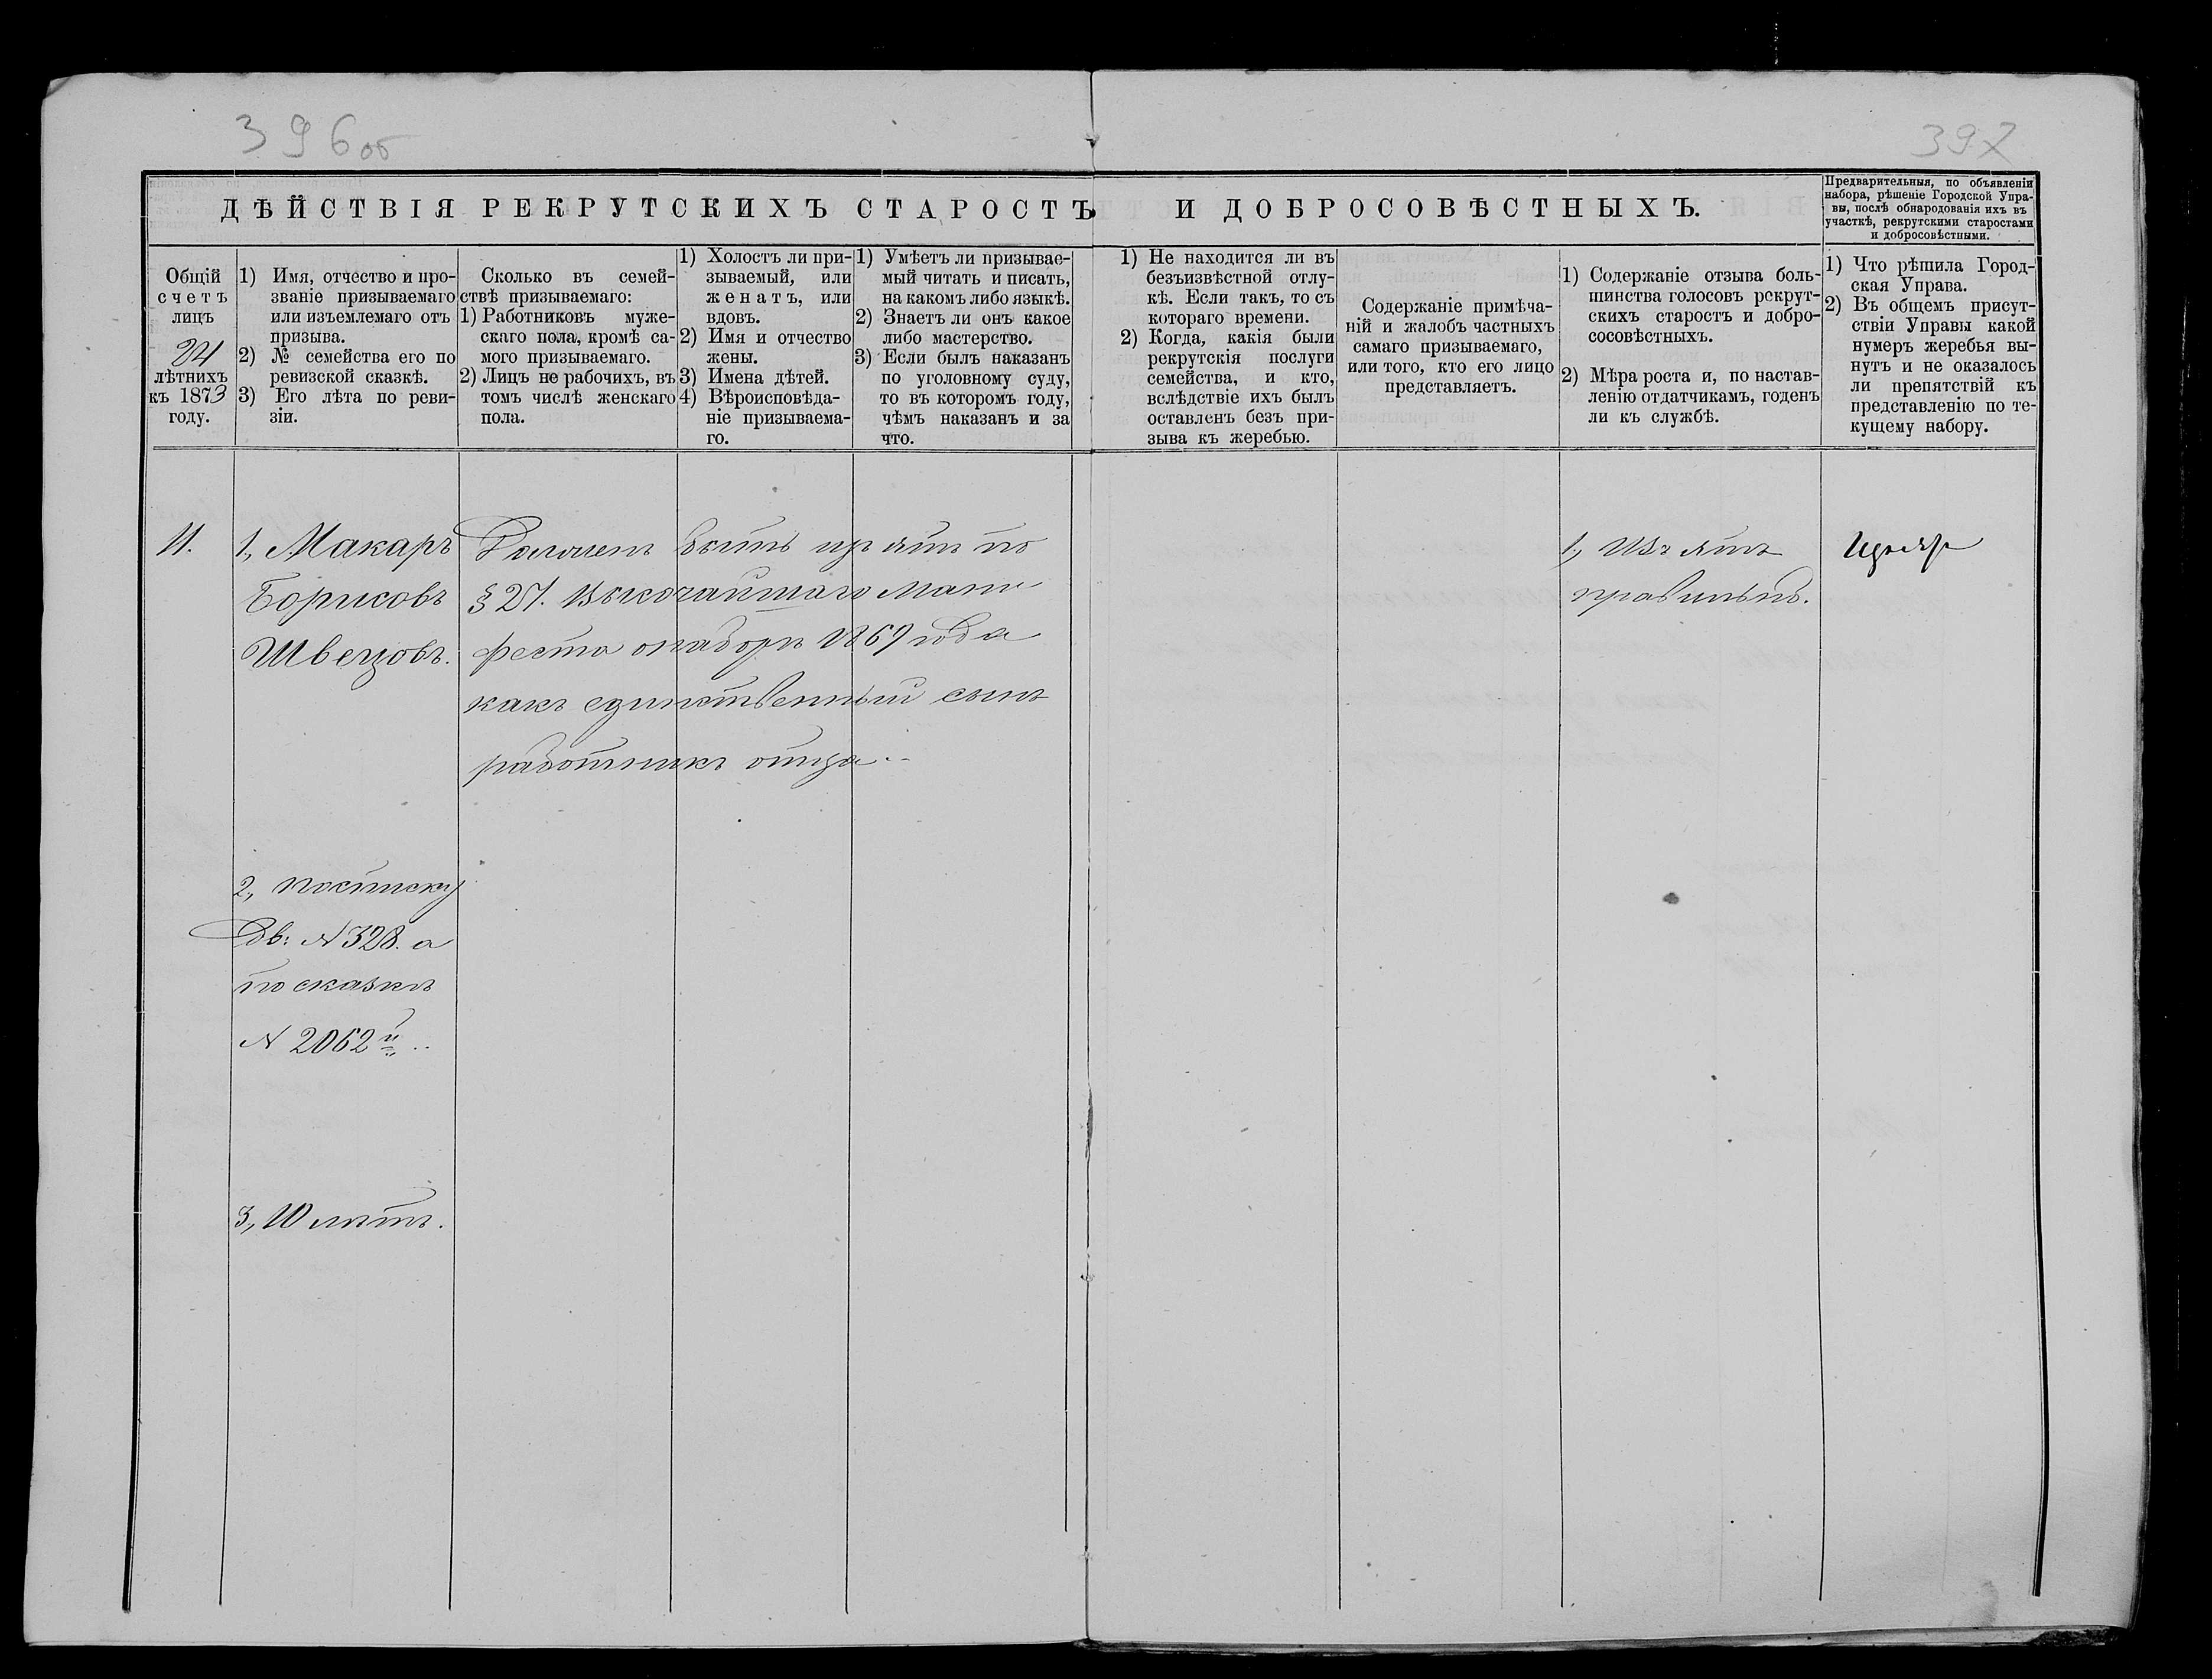 396об
397
ДѢЙСТВІЯ РЕКРУТСКИХЪ СТАРОСТЪ И ДОБРОСОВѢСТНЫХЪ.
Предварительныя, по объявленіи
набора, рѣшеніе Городской Упра-
вы, послѣ обнародованія ихъ въ
участкѣ, рекрутскими старостами
и добросовѣстными.
Общій
счетъ
лицъ
24
лѣтнихъ
къ 1873
году.
1) Имя, отчество и про-
званіе призываемаго
или изъемлемаго отъ
призыва.
2) № семейства его по
ревизской сказкѣ.
3) Его лѣта по реви-
зіи.
Сколько въ семей-
ствѣ призываемаго:
1) Работниковъ муже-
скаго пола, кромѣ са-
мого призываемаго.
2) Лицъ не рабочихъ, въ
томъ числѣ женскаго
пола.
1) Холостъ ли при-
зываемый, или
женатъ, или
вдовъ.
2) Имя и отчество
жены.
3) Имена дѣтей.
4) Вѣроисповѣда-
ніе призываема-
го.
1) Умѣетъ ли призывае-
мый читать и писать,
на какомъ либо языкѣ.
2) Знаетъ ли онъ какое
либо мастерство.
3) Если былъ наказанъ
по уголовному суду,
то въ которомъ году,
чѣмъ наказанъ и за
что.
1) Не находится ли въ
безъизвѣстной отлу-
кѣ. Если такъ, то съ
котораго времени.
2) Когда, какія были
рекрутскія послуги
семейства, и кто,
вслѣдствіе ихъ былъ
оставленъ безъ при-
зыва къ жеребью.
Содержаніе примѣча-
ній и жалобъ частныхъ
самаго призываемаго,
или того, кто его лицо
представляетъ.
1) Содержаніе отзыва боль-
шинства голосовъ рекрут-
скихъ старостъ и добро-
сосовѣстныхъ.
2) Мѣра роста и, по настав-
ленію отдатчикамъ, годенъ
ли къ службѣ.
1) Что рѣшила Город-
ская Управа.
2) Въ общемъ присут-
ствіи Управы какой
нумеръ жеребья вы-
нутъ и не оказалось
ли препятствій къ
представленію по те-
кущему набору.
11.
1., Макаръ
Борисовъ
Швецовъ.
2., по списку
Дв: № 328. а
по сказкѣ
№ 2062й..
3., 10 лѣтъ.
Долженъ быть изъятъ по
§ 27. Высочайшаго Мани
феста о наборѣ 1869 года
какъ единственный сынъ
работникъ отца..
1., Изъятъ
правильнѣ.
Изъятъ